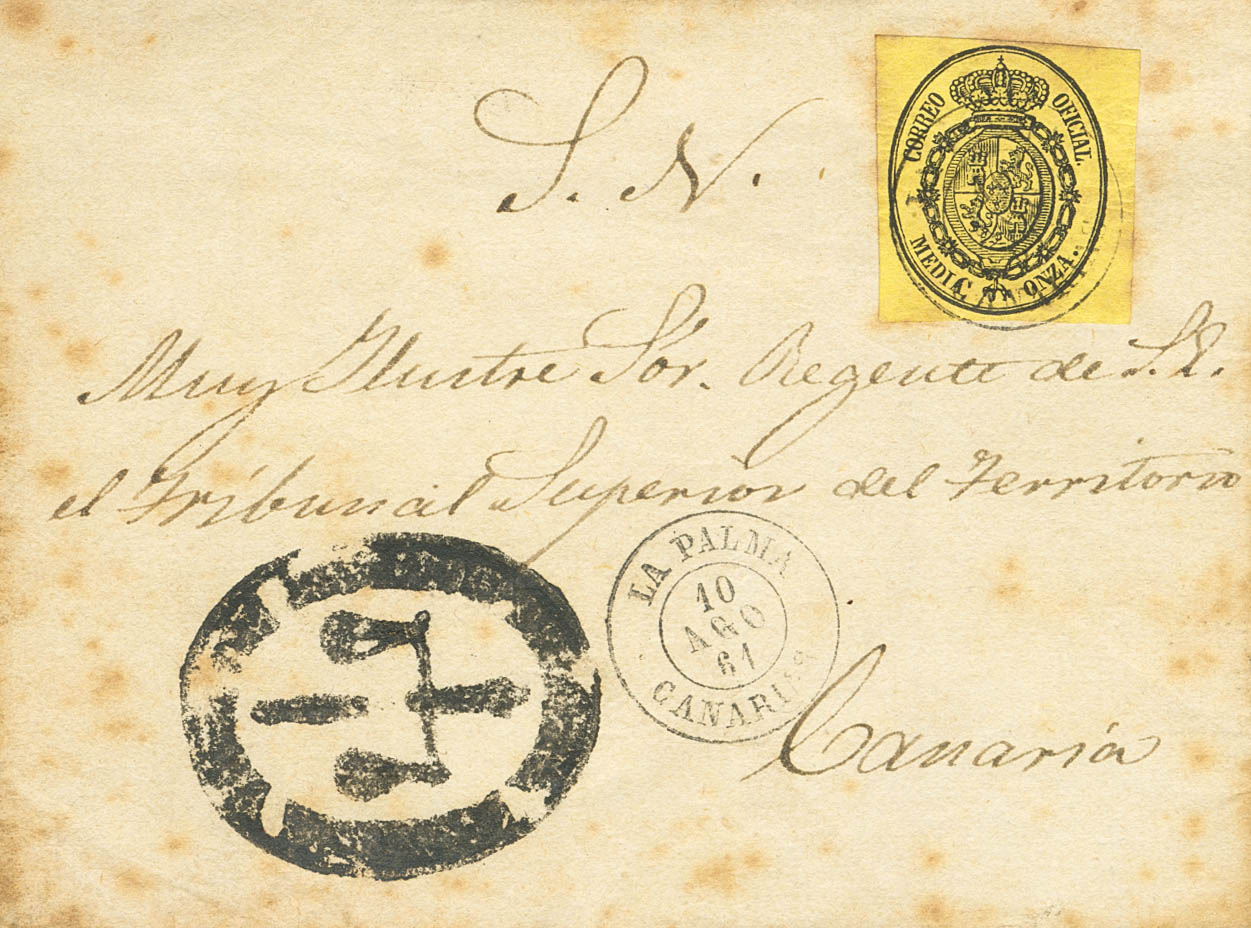 S. N.
CORREO OFICIAL.
MEDIA ONZA.
Muy Ilustre Sór. Regente de S. E.
el Tribunal Superior del Territorio
LA PALMA
10
AGO
61
CANARIAS
Canaria